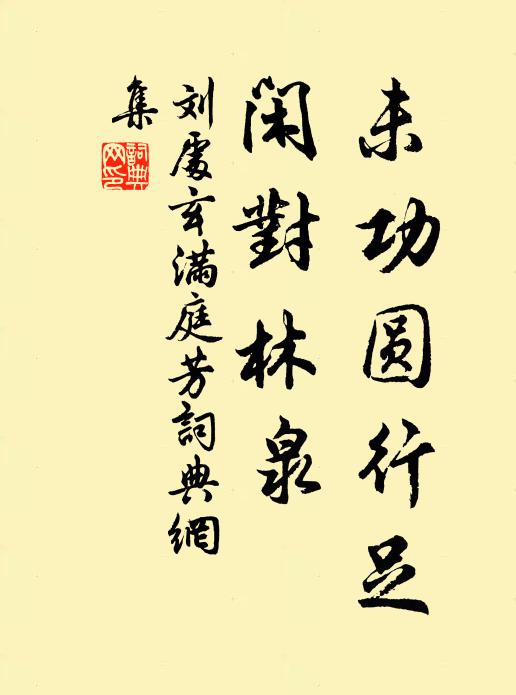 未功圆行足
闲對林泉
刘處玄满庭芳詞典網
集
詞典網印